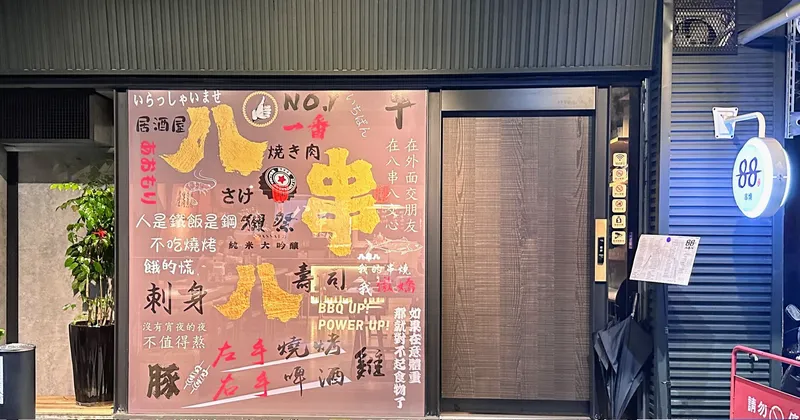 いらっしゃいませ
NO.1
いちばん
串
居酒屋
一番
八
焼き肉
あおもり
さけ
串
在外面交朋友
在八串八交心
人是鐵飯是鋼
獺祭
不吃燒烤
純米大吟釀
餓的慌
八串八
我的串燒
我
八
壽司
刺身
BBQ UP!
POWER UP!
沒有宵夜的夜
不值得熬
如果在意體重
那就對不起食物了
左手燒烤
右手啤酒
豚
雞
88
串燒
請勿